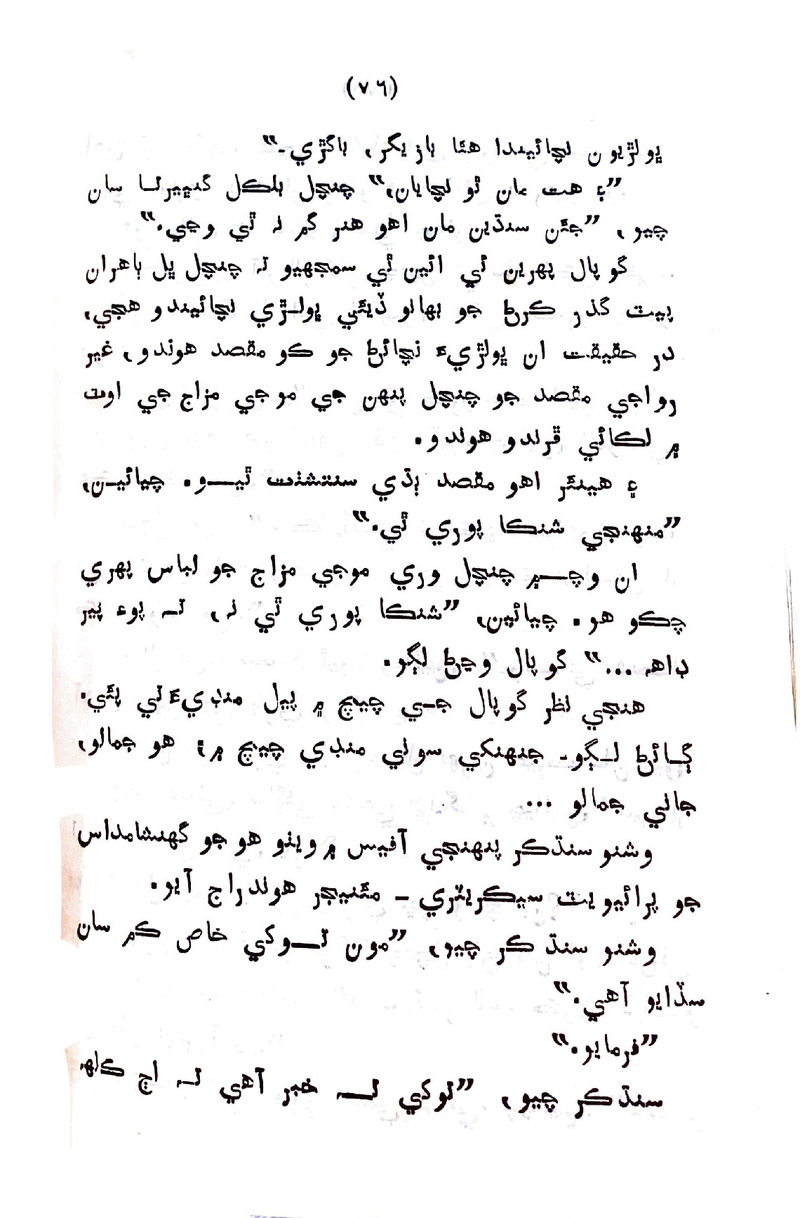 (٧٦)
ڀولڙيون نچائيندا هئا بازيگر، باگڙي-“
”۽ هت مان ٿو نچايان،“ چنچل بلڪل گنڀيرتا سان
چيو، ”جيئن سنڌين مان اهو هنر گم نہ ٿي وڃي.“
گوپال پهرين ٿي ائين ٿي سمجهيو تہ چنچل ڀل ٻاهران
پيٽ گذر ڪرڻ جو بهانو ڏيئي ڀولڙي نچائيندو هجي،
در حقيقت ان ڀولڙيءَ نچائڻ جو ڪو مقصد هوندو، غير
رواجي مقصد جو چنچل پنهن جي موجي مزاج جي اوٽ
۾ لڪائي ڦرندو هوندو.
۽ هينئر اهو مقصد ٻڌي سنتشٽ ٿيو. چيائين،
”منهنجي شنڪا پوري ٿي.“
ان وچ ۾ چنچل وري موجي مزاج جو لباس پهري
چڪو هو. چيائين، ”شنڪا پوري ٿي نہ، تہ پوءِ پير
ڊاهہ ...“ گوپال وڃڻ لڳو.
هنجي نظر گوپال جي چيچ ۾ پيل منڊيءَ تي پئي.
ڳائڻ لڳو- جنهنکي سوني منڊي چيچ ۾؛ هو جمالو،
جاني جمالو ...
وشنو سنڌڪر پنهنجي آفيس ۾ ويٺو هو جو گهنشامداس
جو پرائيويٽ سيڪريٽري - مئنيجر هوندراج آيو.
وشنو سنڌڪر چيو، ”مون توکي خاص ڪم سان
سڏايو آهي.“
”فرمايو.“
سنڌڪر چيو، ”توکي تہ خبر آهي تہ اڄ ڪلهہ